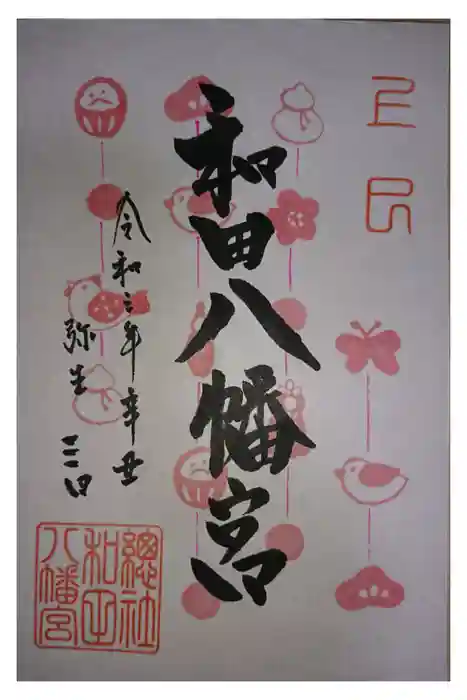 上巳
和田八幡宮
令和三年辛丑
弥生三日
總社
和田
八幡宮